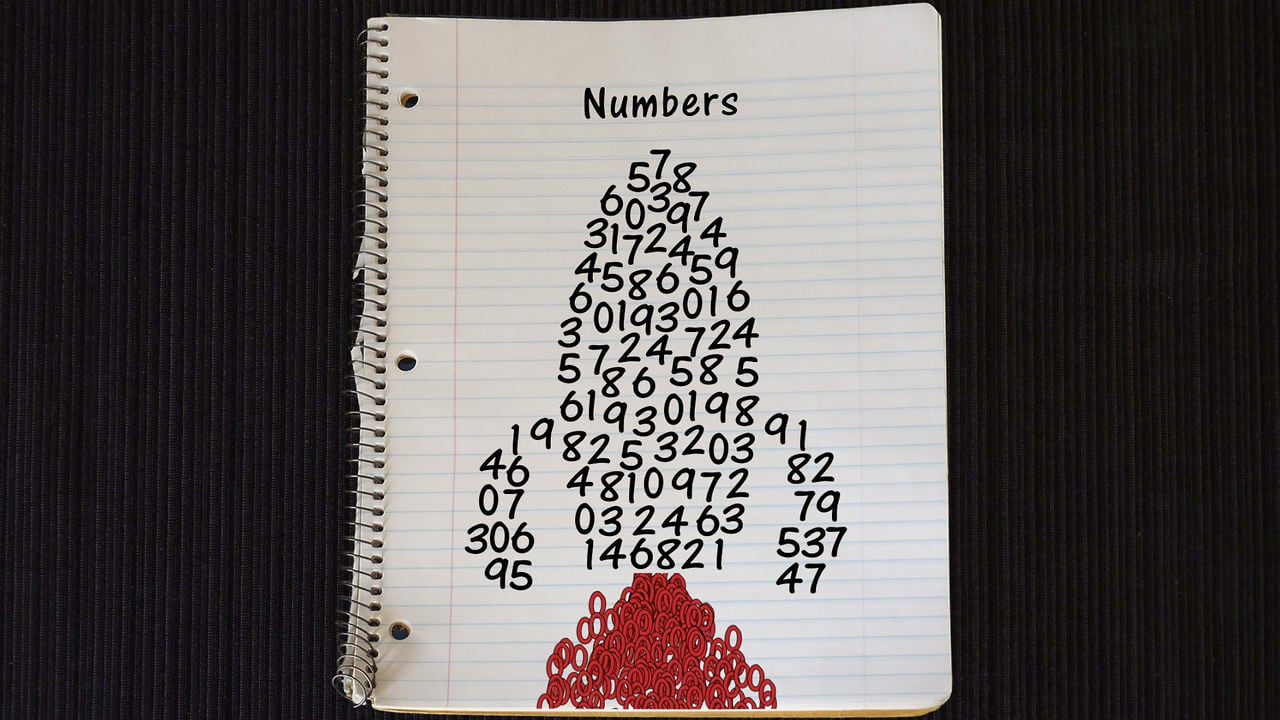 Numbers
578
60397
317244
458659
60193016
3724724
586585
61930198
19 8253203 91
46 4810972 82
07 032463 79
306 146821 537
95 47